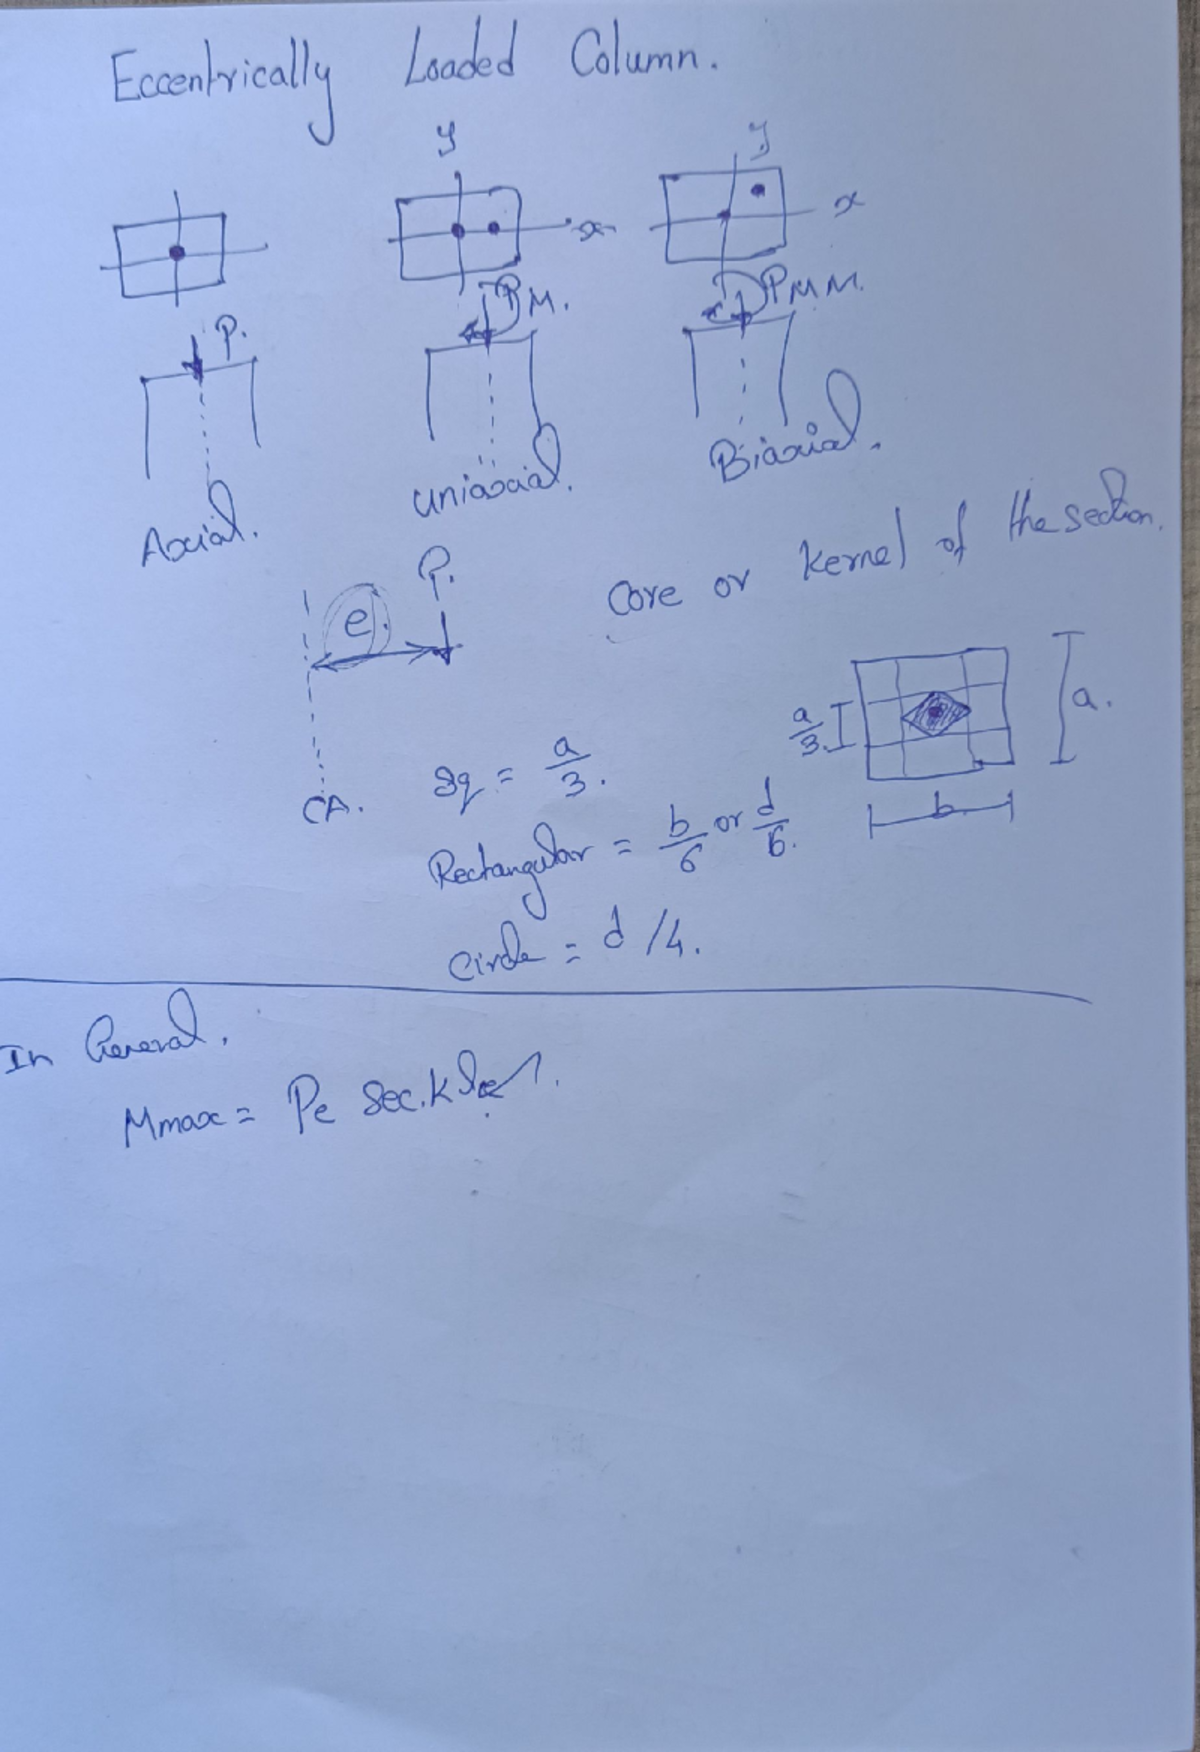 Eccentrically Loaded Column.
y y
x x
P. P M. P M M.
Axial. Uniaxial. Biaxial.
Core or kernel of the section.
e. P.
a/3. a.
CA. Sq = a/3.
b
Rectangular = b/6 or d/6.
Circle = d/4.
In General.
Mmax = Pe Sec. k